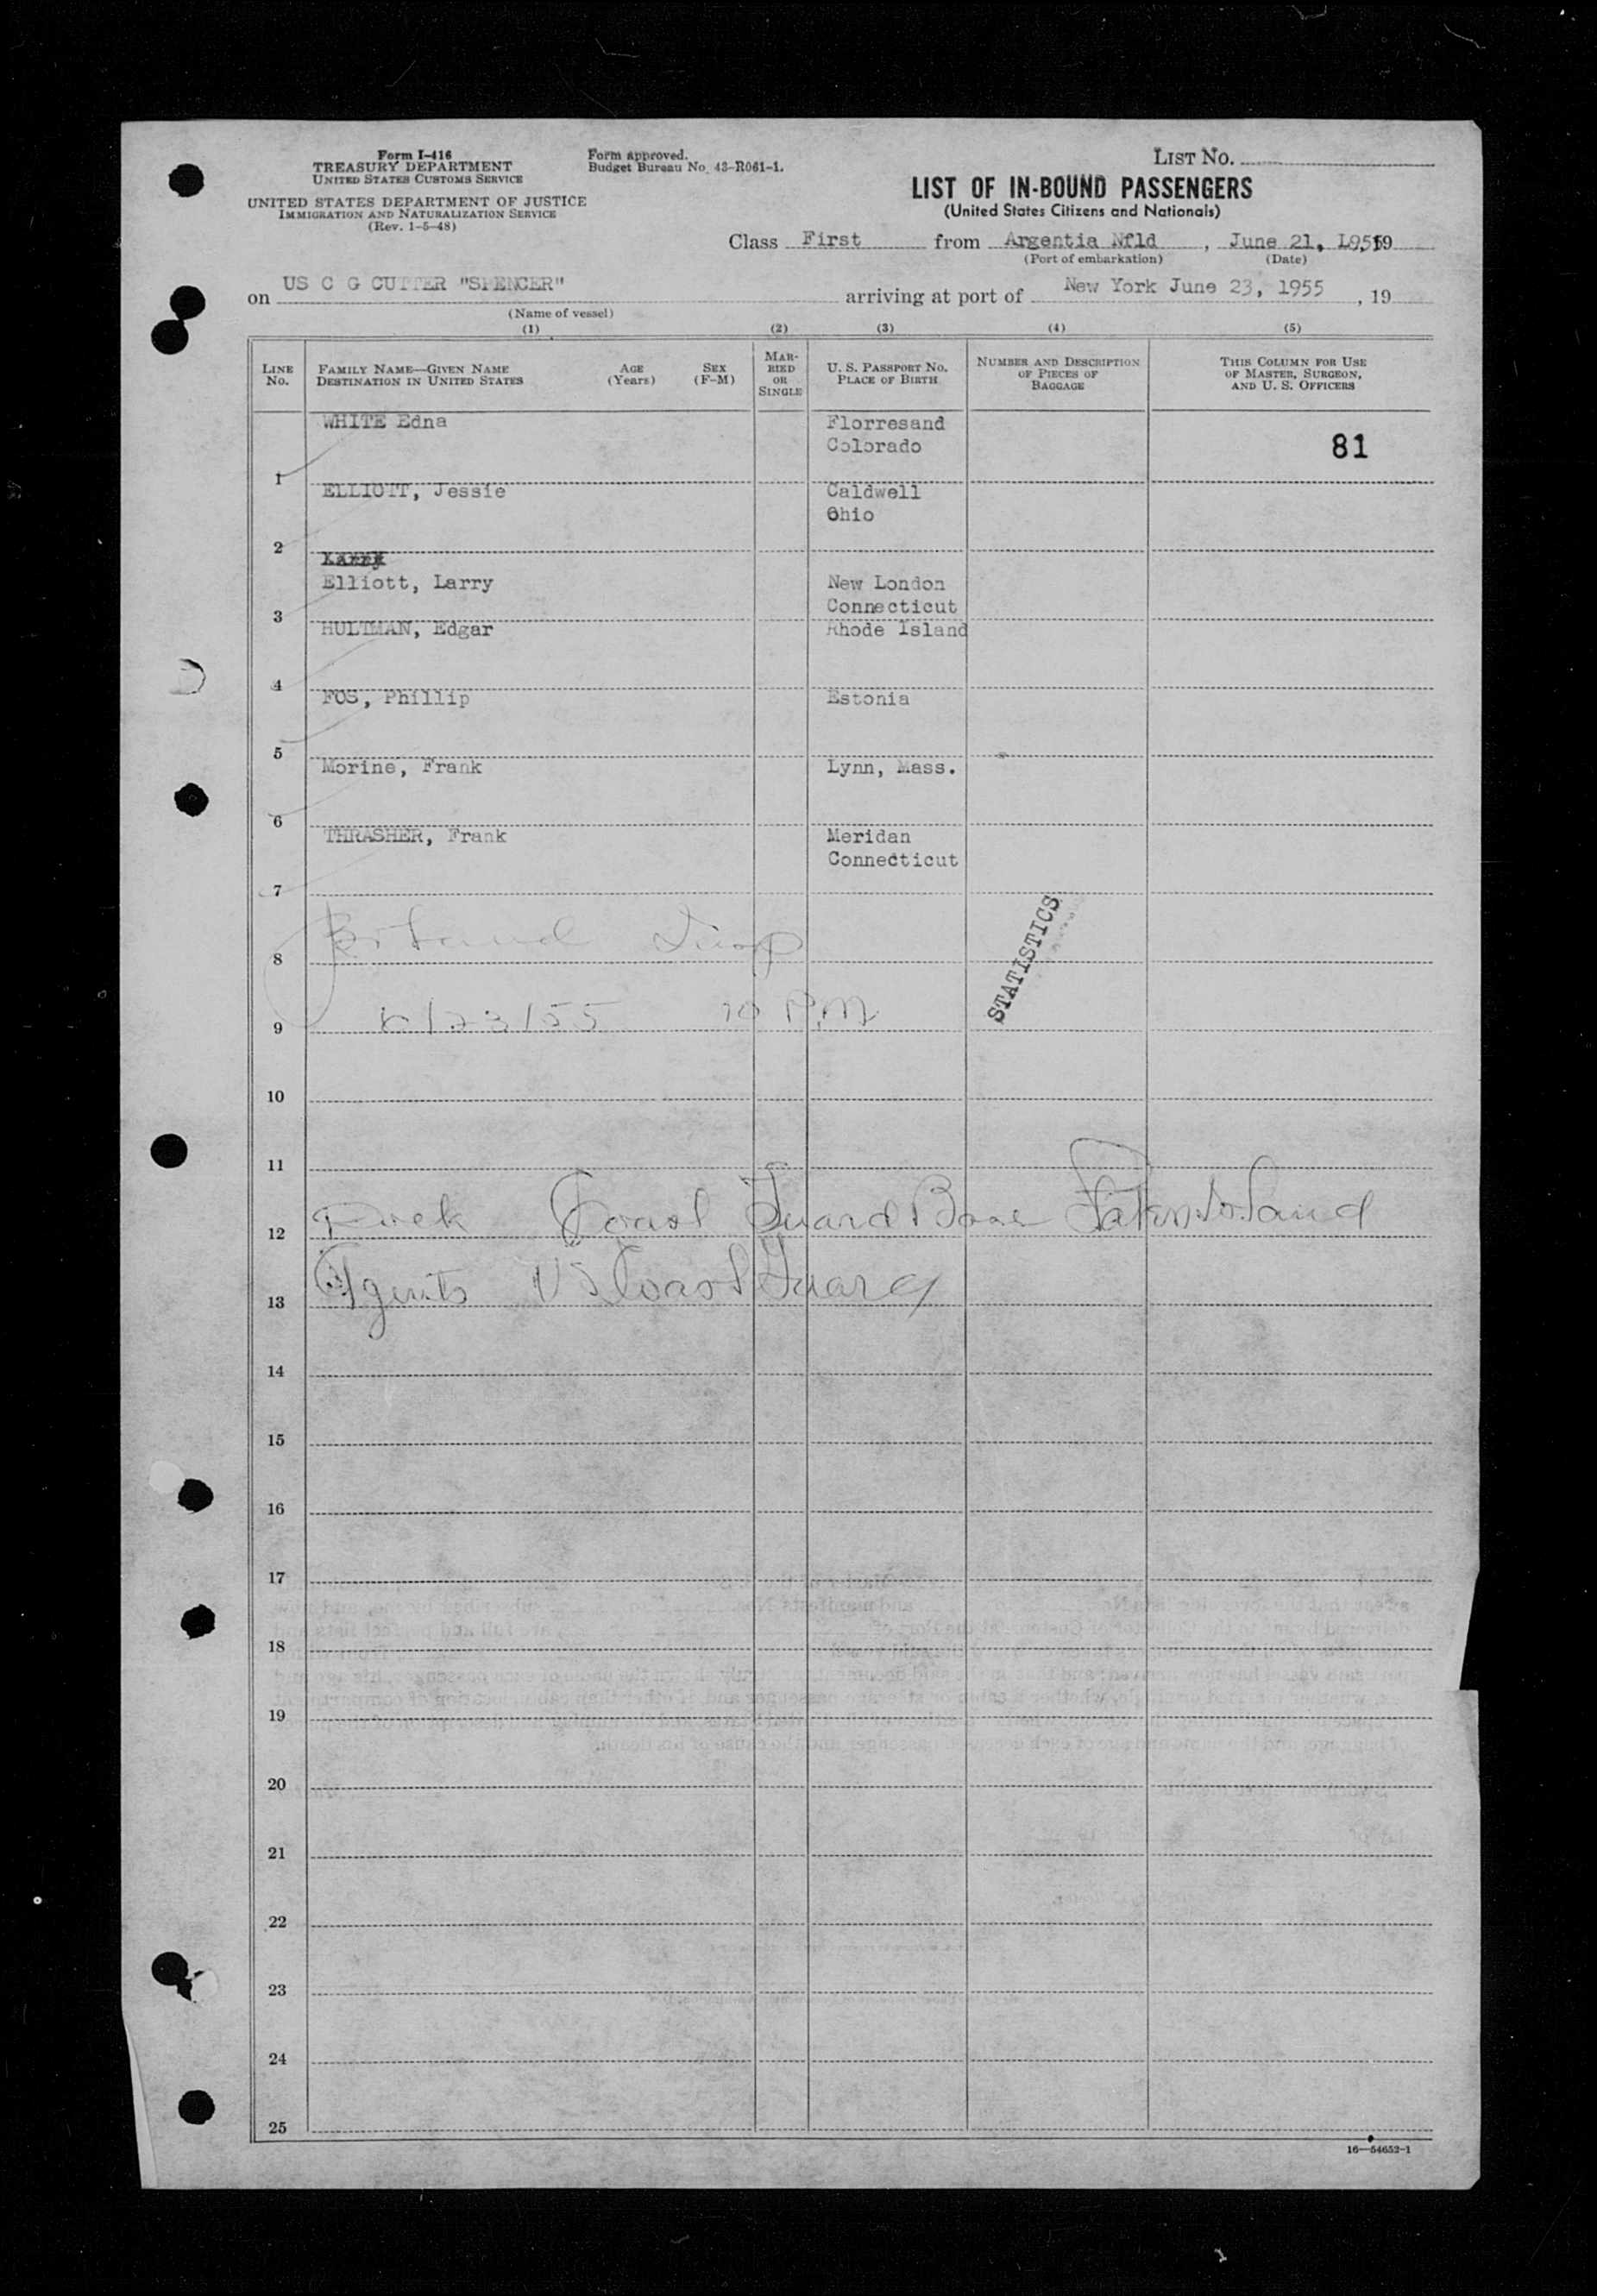 Form I-416
TREASURY DEPARTMENT
UNITED STATES CUSTOMS SERVICE
UNITED STATES DEPARTMENT OF JUSTICE
IMMIGRATION AND NATURALIZATION SERVICE
(Rev. 1-5-48)
Form approved.
Budget Bureau No. 43-R061-1.
LIST NO.
LIST OF IN-BOUND PASSENGERS
(United States Citizens and Nationals)
Class First from Argentia Nfld, June 21, 1955, 19
(Port of embarkation) (Date)
on US C G CUTTER "SPENCER" arriving at port of New York June 23, 1955, 19
(Name of vessel)
(1) (2) (3) (4) (5)
LINE NO.
FAMILY NAME—GIVEN NAME
DESTINATION IN UNITED STATES
AGE (Years)
SEX (F-M)
MARRIED OR SINGLE
U. S. PASSPORT NO.
PLACE OF BIRTH
NUMBER AND DESCRIPTION OF PIECES OF BAGGAGE
THIS COLUMN FOR USE OF MASTER, SURGEON, AND U. S. OFFICERS
WHITE Edna Florresand
Colorado 81
1
ELLIOTT, Jessie Caldwell
Ohio
2
Larry
Elliott, Larry New London
Connecticut
3
HULTMAN, Edgar Rhode Island
4
FOS, Phillip Estonia
5
Morine, Frank Lynn, Mass.
6
THRASHER, Frank Meridan
Connecticut
7
STATISTICS
8
6/23/55 10 PM
9
10
11
Dock Coast Guard Base Staten Island
12
Agents US Coast Guard
13
14
15
16
17
18
19
20
21
22
23
24
25
16—54652-1